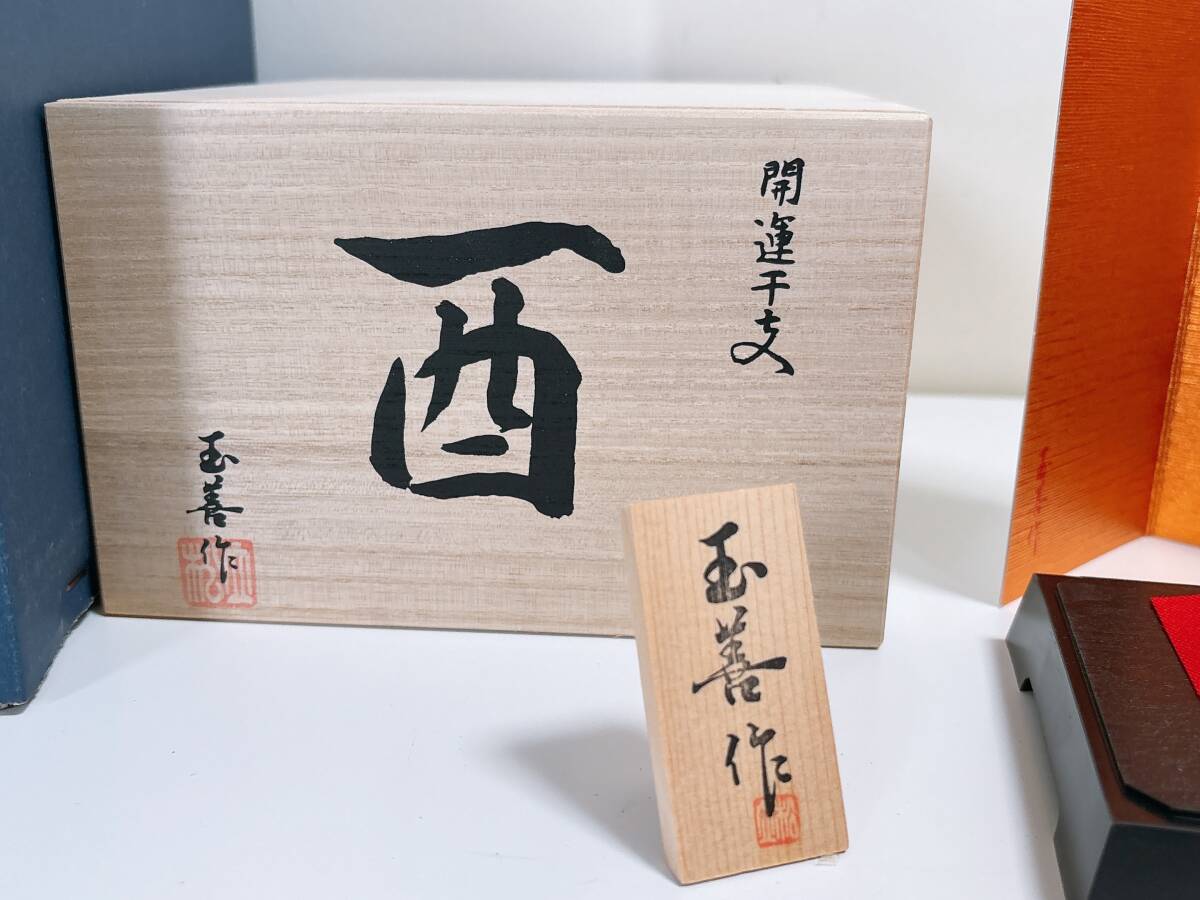 開運干支
酉
玉善作
玉善作